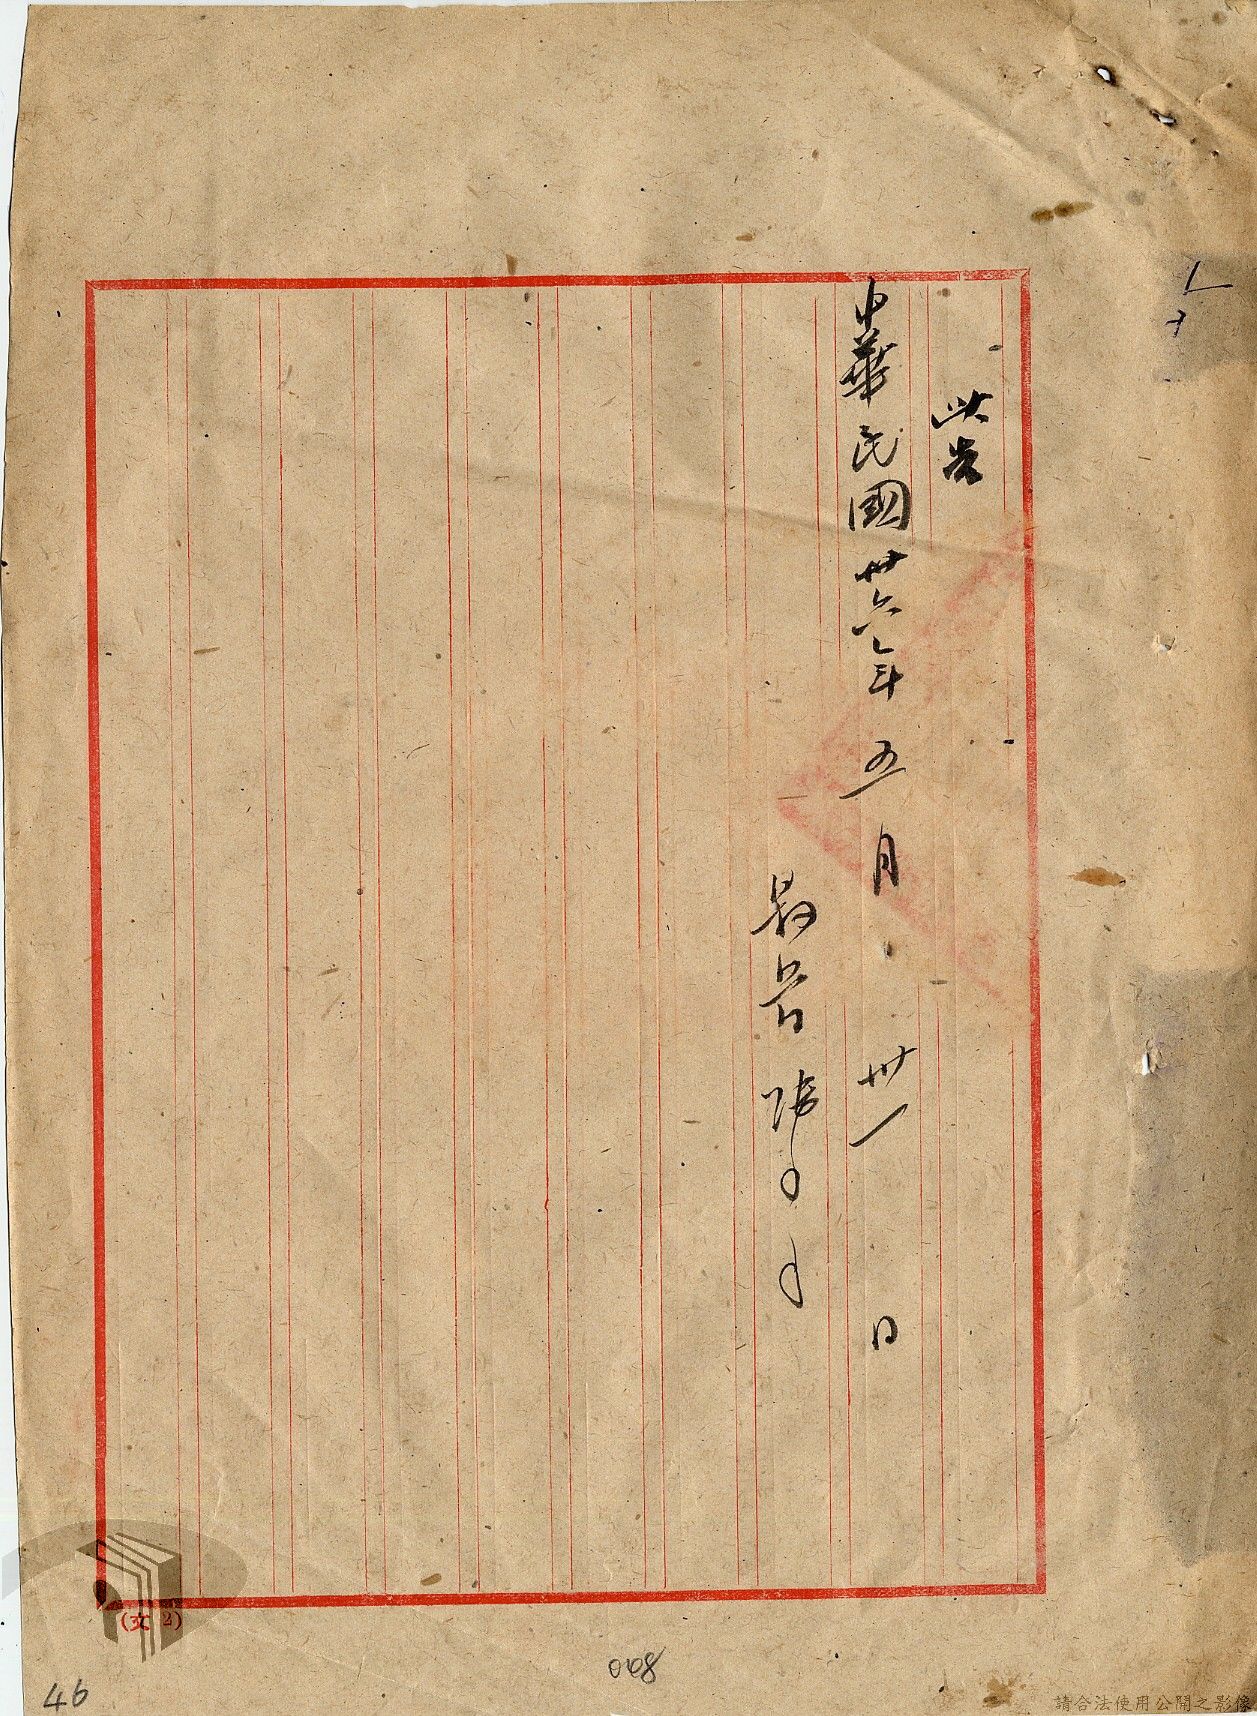 此告
中華民國卅六年五月卅一日
(文 2)
068
46
請合法使用公開之影像